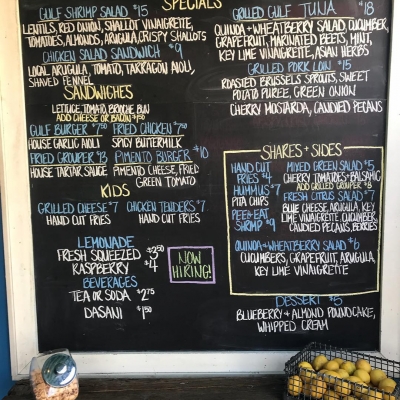 SPECIALS
GULF SHRIMP SALAD $15
LENTILS, RED ONION, SHALLOT VINAIGRETTE,
TOMATOES, ALMONDS, ARUGULA, CRISPY SHALLOTS
CHICKEN SALAD SANDWICH $9
LOCAL ARUGULA, TOMATO, TARRAGON AIOLI,
SHAVED FENNEL
SANDWICHES
LETTUCE, TOMATO, BRIOCHE BUN
ADD CHEESE OR BACON $1.50
GULF BURGER $7.50 FRIED CHICKEN $7.50
HOUSE GARLIC AIOLI SPICY BUTTERMILK
FRIED GROUPER $13 PIMENTO BURGER $10
HOUSE TARTAR SAUCE PIMENTO CHEESE, FRIED
GREEN TOMATO
KIDS
GRILLED CHEESE $7 CHICKEN TENDERS $7
HAND CUT FRIES HAND CUT FRIES
LEMONADE
FRESH SQUEEZED $3.50
RASPBERRY $4
BEVERAGES
TEA OR SODA $2.75
DASANI $1.50
NOW
HIRING!
GRILLED GULF TUNA $18
QUINOA + WHEATBERRY SALAD, CUCUMBER,
GRAPEFRUIT, MARINATED BEETS, MINT,
KEY LIME VINAIGRETTE, ASIAN HERBS
GRILLED PORK LOIN $15
ROASTED BRUSSELS SPROUTS, SWEET
POTATO PUREE, GREEN ONION
CHERRY MOSTARDA, CANDIED PECANS
SHARES + SIDES
HAND CUT
FRIES $4
HUMMUS $7
PITA CHIPS
PEEL + EAT
SHRIMP $9
MIXED GREEN SALAD $5
CHERRY TOMATOES + BALSAMIC
ADD GRILLED GROUPER $8
FRESH CITRUS SALAD $7
BLUE CHEESE, ARUGULA, KEY
LIME VINAIGRETTE, CUCUMBER,
CANDIED PECANS, BERRIES
QUINOA + WHEATBERRY SALAD $6
CUCUMBERS, GRAPEFRUIT, ARUGULA,
KEY LIME VINAIGRETTE
DESSERT $5
BLUEBERRY + ALMOND POUNDCAKE,
WHIPPED CREAM